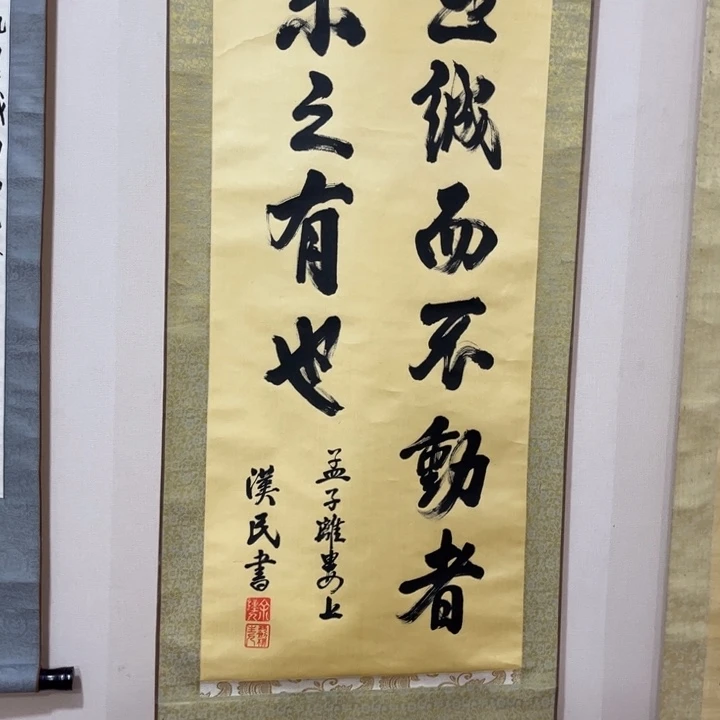 至誠而不動者
未之有也
孟子離婁上
漢民書